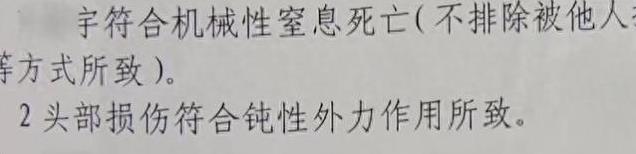 符合机械性窒息死亡(不排除被他人
等方式所致)。
2 头部损伤符合钝性外力作用所致。